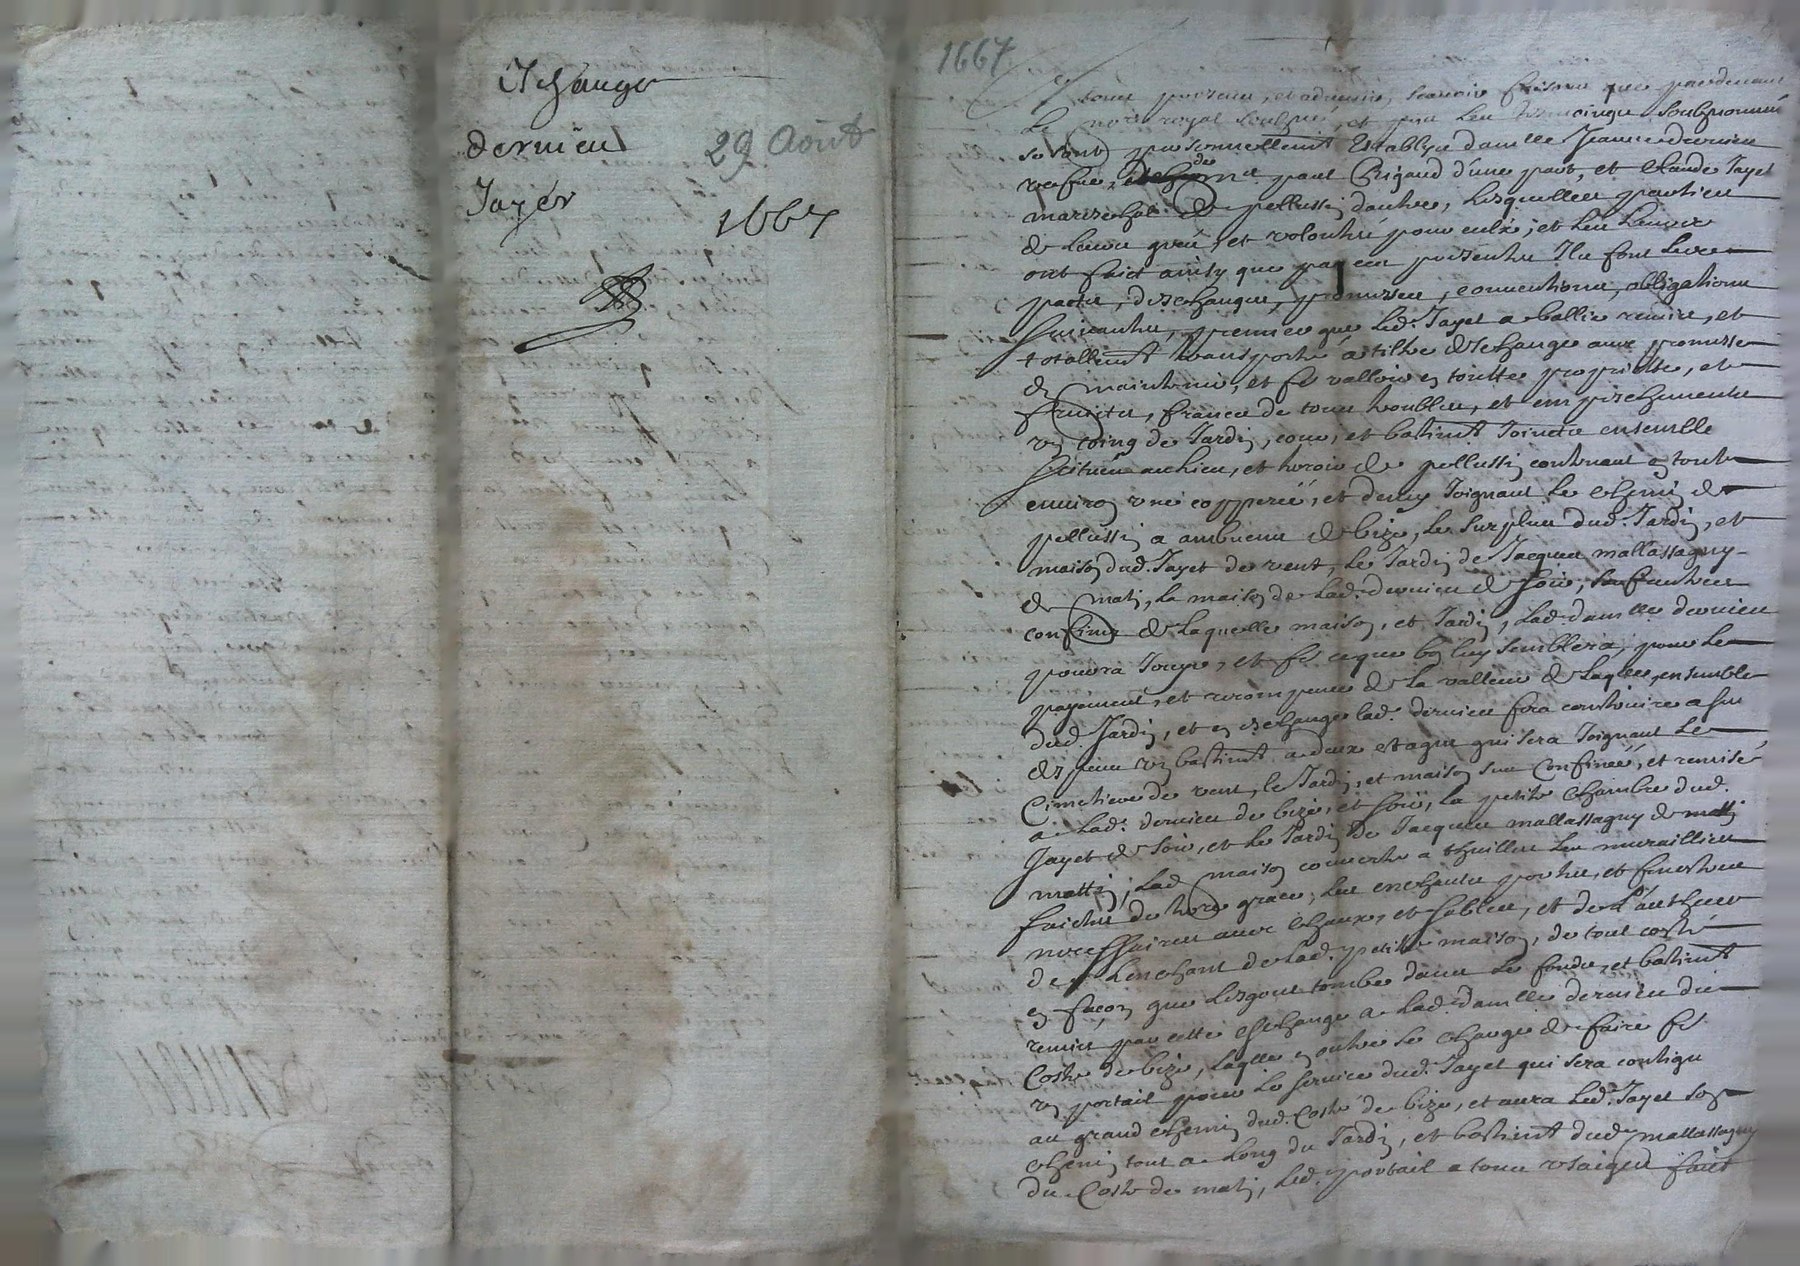 Eschange
dernieu
29 Août
Jayet
1667
1667
A tous presens, et advenir, scavoir faisons que pardevant
Le no.re royal soubzné, et pnt les tesmoings soubznommés
se sont personnellemt establys damlle Jeanne dernieu
vefve, de paul Rigaud d'une part, et Claude Jayet
mareschal de pellussin dautre, lesquelles parties
de leurs grés, et volonttés pour eulx, et les leurs
ont faict ainsy que par ces presentes Ils font les
pactes, deschanges, promesses, conventions, obligations
suivantes, premier que led. Jayet a baillé remis, et
totallemt transporté a tiltre deschange avec promesse
de maintenir, et fe valloir en toutte proprietté, et
fruicts, francs de tous troubles, et empeschements
un coing de Jardin, cour, et bastimt Joincts ensemble
scitués au lieu, et terroir de pellussin contenant en tout
environ une coupperée, et demy Joignant le chemin de
pellussin a ambuens de bize, le surplus dud. Jardin, et
maison dud. Jayet de vent, le Jardin de Jacques mallassagny
de matin, la maison de lad. dernieu de soir, sauf autres
confins de laquelle maison, et Jardin, lad. damlle dernieu
pourra Jouyr, et fe ce que bon luy semblera, pour le
payement, et recompence de la valleur de laqlle, ensemble
dud. Jardin, et en eschange lad. dernieu fera construire a ses
despens un bastimt a deux estages qui sera Joignant le
Cimetiere de vent, le Jardin, et maison sus confinés, et remise
a lad. dernieu de bize, et soir, la petite chambre dud.
Jayet de soir, et le Jardin de Jacques mallassagny de matin
mattin, lad. maison couverte a thuilles les murailles
faictes de terre grace, les enchants portes, et fenestres
necessaires avec chaux, et sables, et de l'autheur
de lenchant de lad. petite maison, de tout costé
en façon que lesgout tombe dans le fonds, et bastimt
remis par cette eschange a lad. damlle dernieu du
Costé de bize, laqlle en outre se charge de faire fe
un portail pour le service dud. Jayet qui sera contigu
au grand chemin dud. Costé de bize, et aura led. Jayet son
chemin tout a long du Jardin, et bastimt dud. mallassagny
du Costé de matin, led. portail a tous usages faict